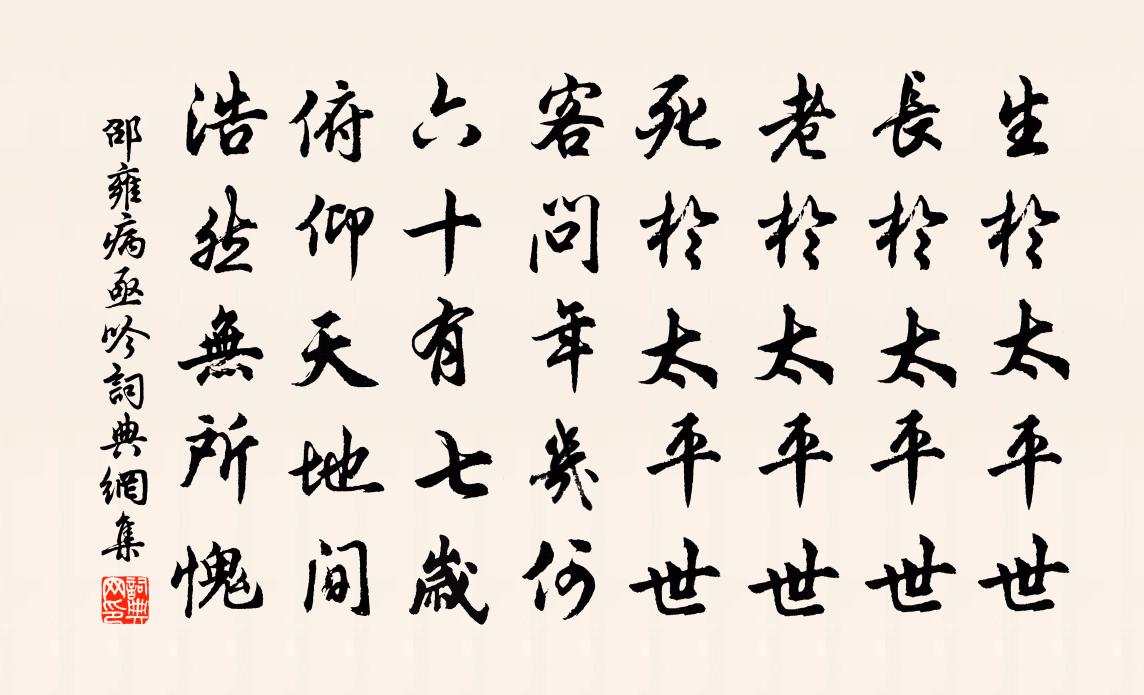 生於太平世
長於太平世
老於太平世
死於太平世
客問年幾何
六十有七歲
俯仰天地間
浩然無所愧
邵雍病亟吟詞典網集
詞典網印